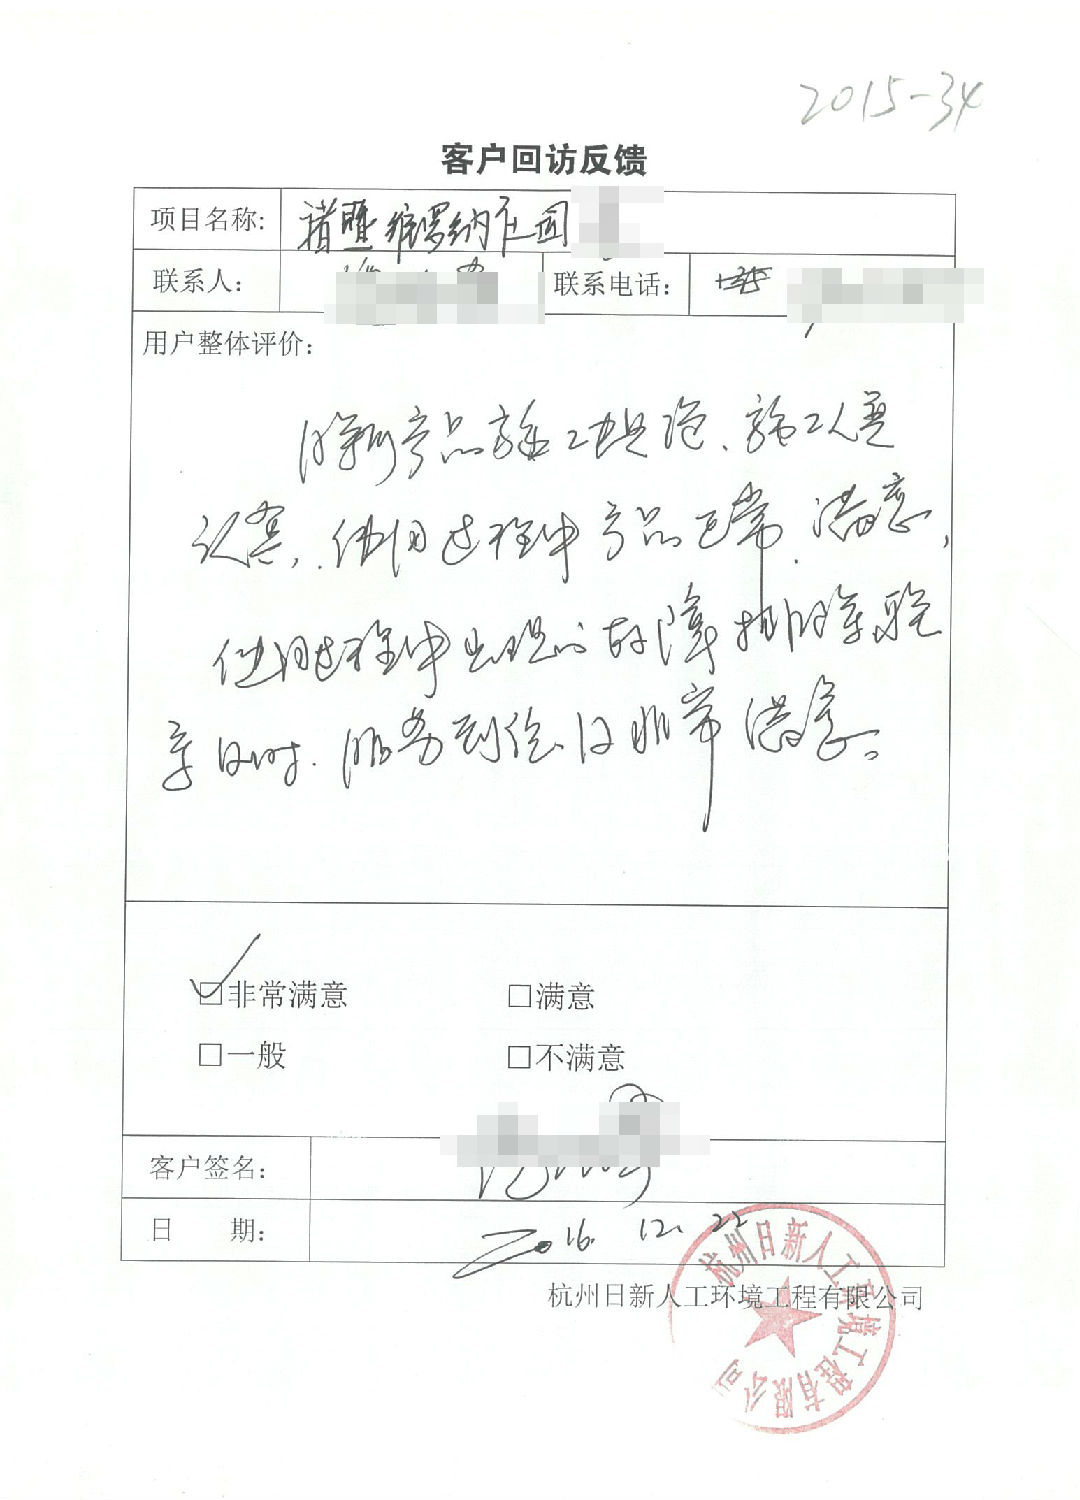 2015-34
客户回访反馈
项目名称: 诸暨维罗纳庄园
联系人:
联系电话:
用户整体评价:
日新产品施工规范、施工人员
认真,使用过程中产品正常.满意,
使用过程中出现的故障排除
及时.服务到位非常满意。
非常满意 □满意
□一般 □不满意
客户签名:
日 期: 2016.12.22
杭州日新人工环境工程有限公司
杭州日新人工环境工程有限公司